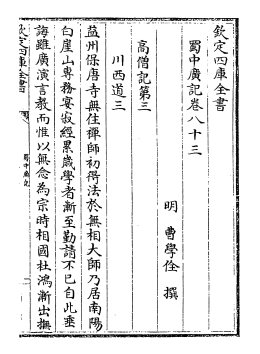 欽定四庫全書
蜀中廣記卷八十三
明 曹學佺 撰
高僧記第三
川西道三
益州保唐寺無住禪師初得法於無相大師乃居南陽
白崖山專務宴寂經累歲學者漸至勤請不已自此垂
誨雖廣演言教而惟以無念為宗時相國杜鴻漸出撫
欽定四庫全書
蜀中廣記